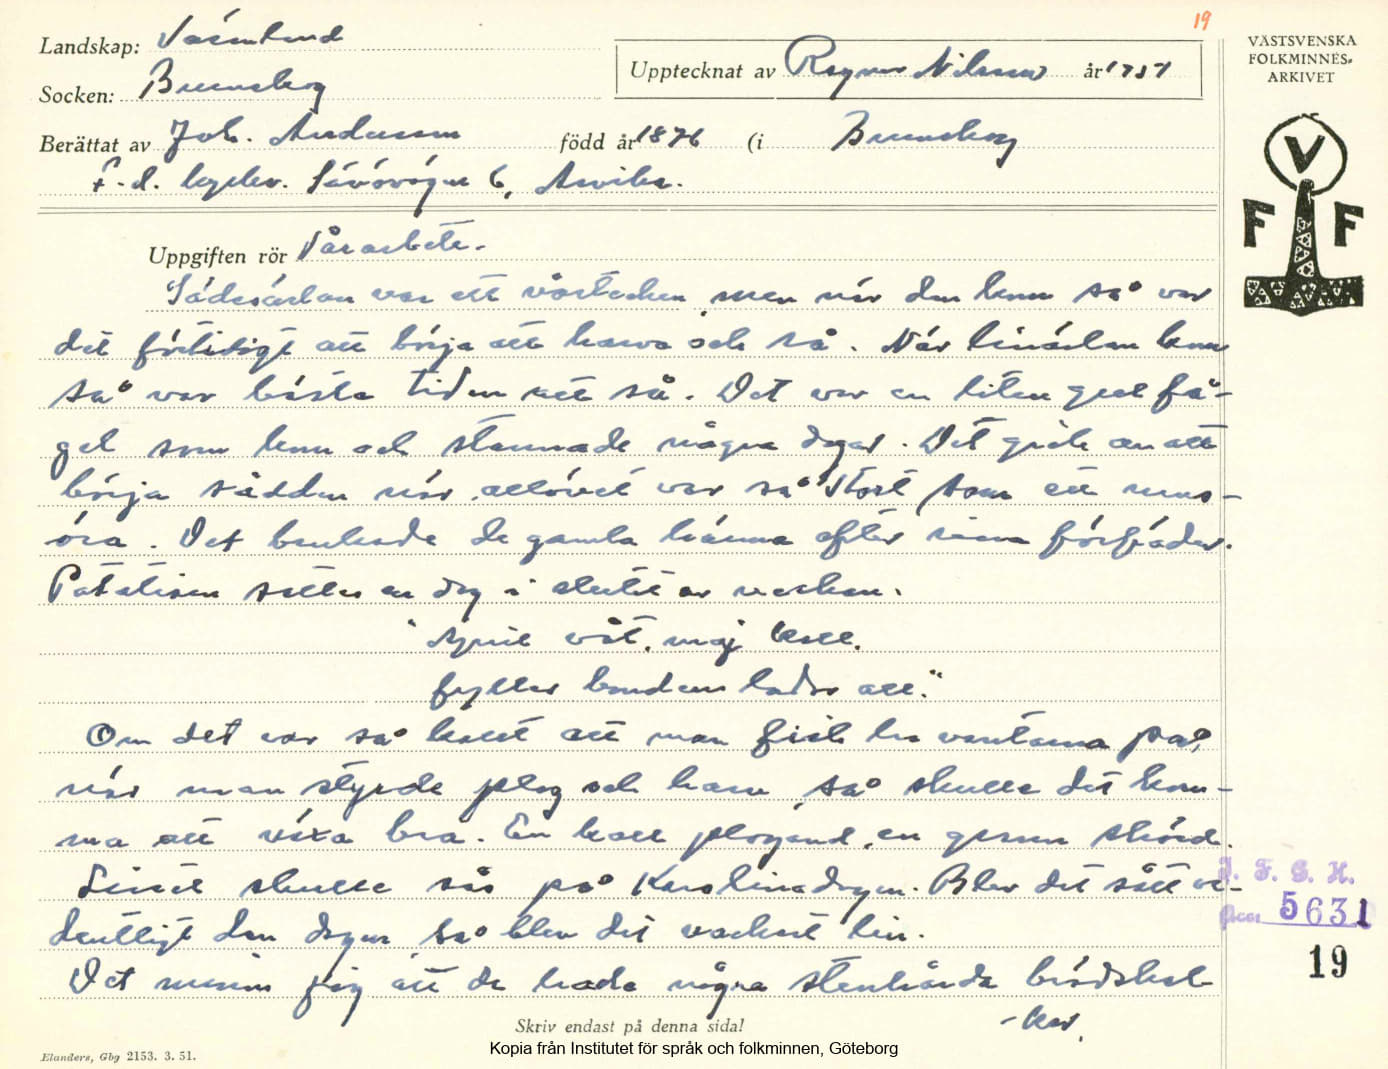 19
Landskap: Värmland
Socken: Brunskog
Upptecknat av Ragnar Nilsson år 1957
Berättat av Joh. Andersson född år 1876 (i Brunskog
F.d. byggkv. Sävövägen 6, Arvika.
VÄSTSVENSKA
FOLKMINNES-
ARKIVET
V
F F
Uppgiften rör Vårarbete.
Sädesärlan var ett vårtecken, men när den kom så var
det förtidigt att börja att harva och så. När linärlan kom
så var bästa tiden att så. Det var en liten gul få-
gel som kom och stannade några dagar. Det gick an att
börja sådden när allövet var så stort som ett mus-
öra. Det brukade de gamla känna efter sina förfäder.
Potatisen sattes en dag i slutet av veckan.
"April våt, maj kall,
fyller bondens lador all."
Om det var så kallt att man fick ha vantarna på,
när man styrde plog och harv, så skulle det kom-
ma att växa bra. En kall plogand, en gynn skörd.
Linet skulle sås på Karolinadagen. Blev det sått or-
dentligt den dagen, så blev det vackert lin.
Det minns jag att de hade några stenhårda brödskal-
-kar.
D. F. G. H.
Acc 5631
19
Skriv endast på denna sida!
Kopia från Institutet för språk och folkminnen, Göteborg
Elanders, Gbg 2153. 3. 51.